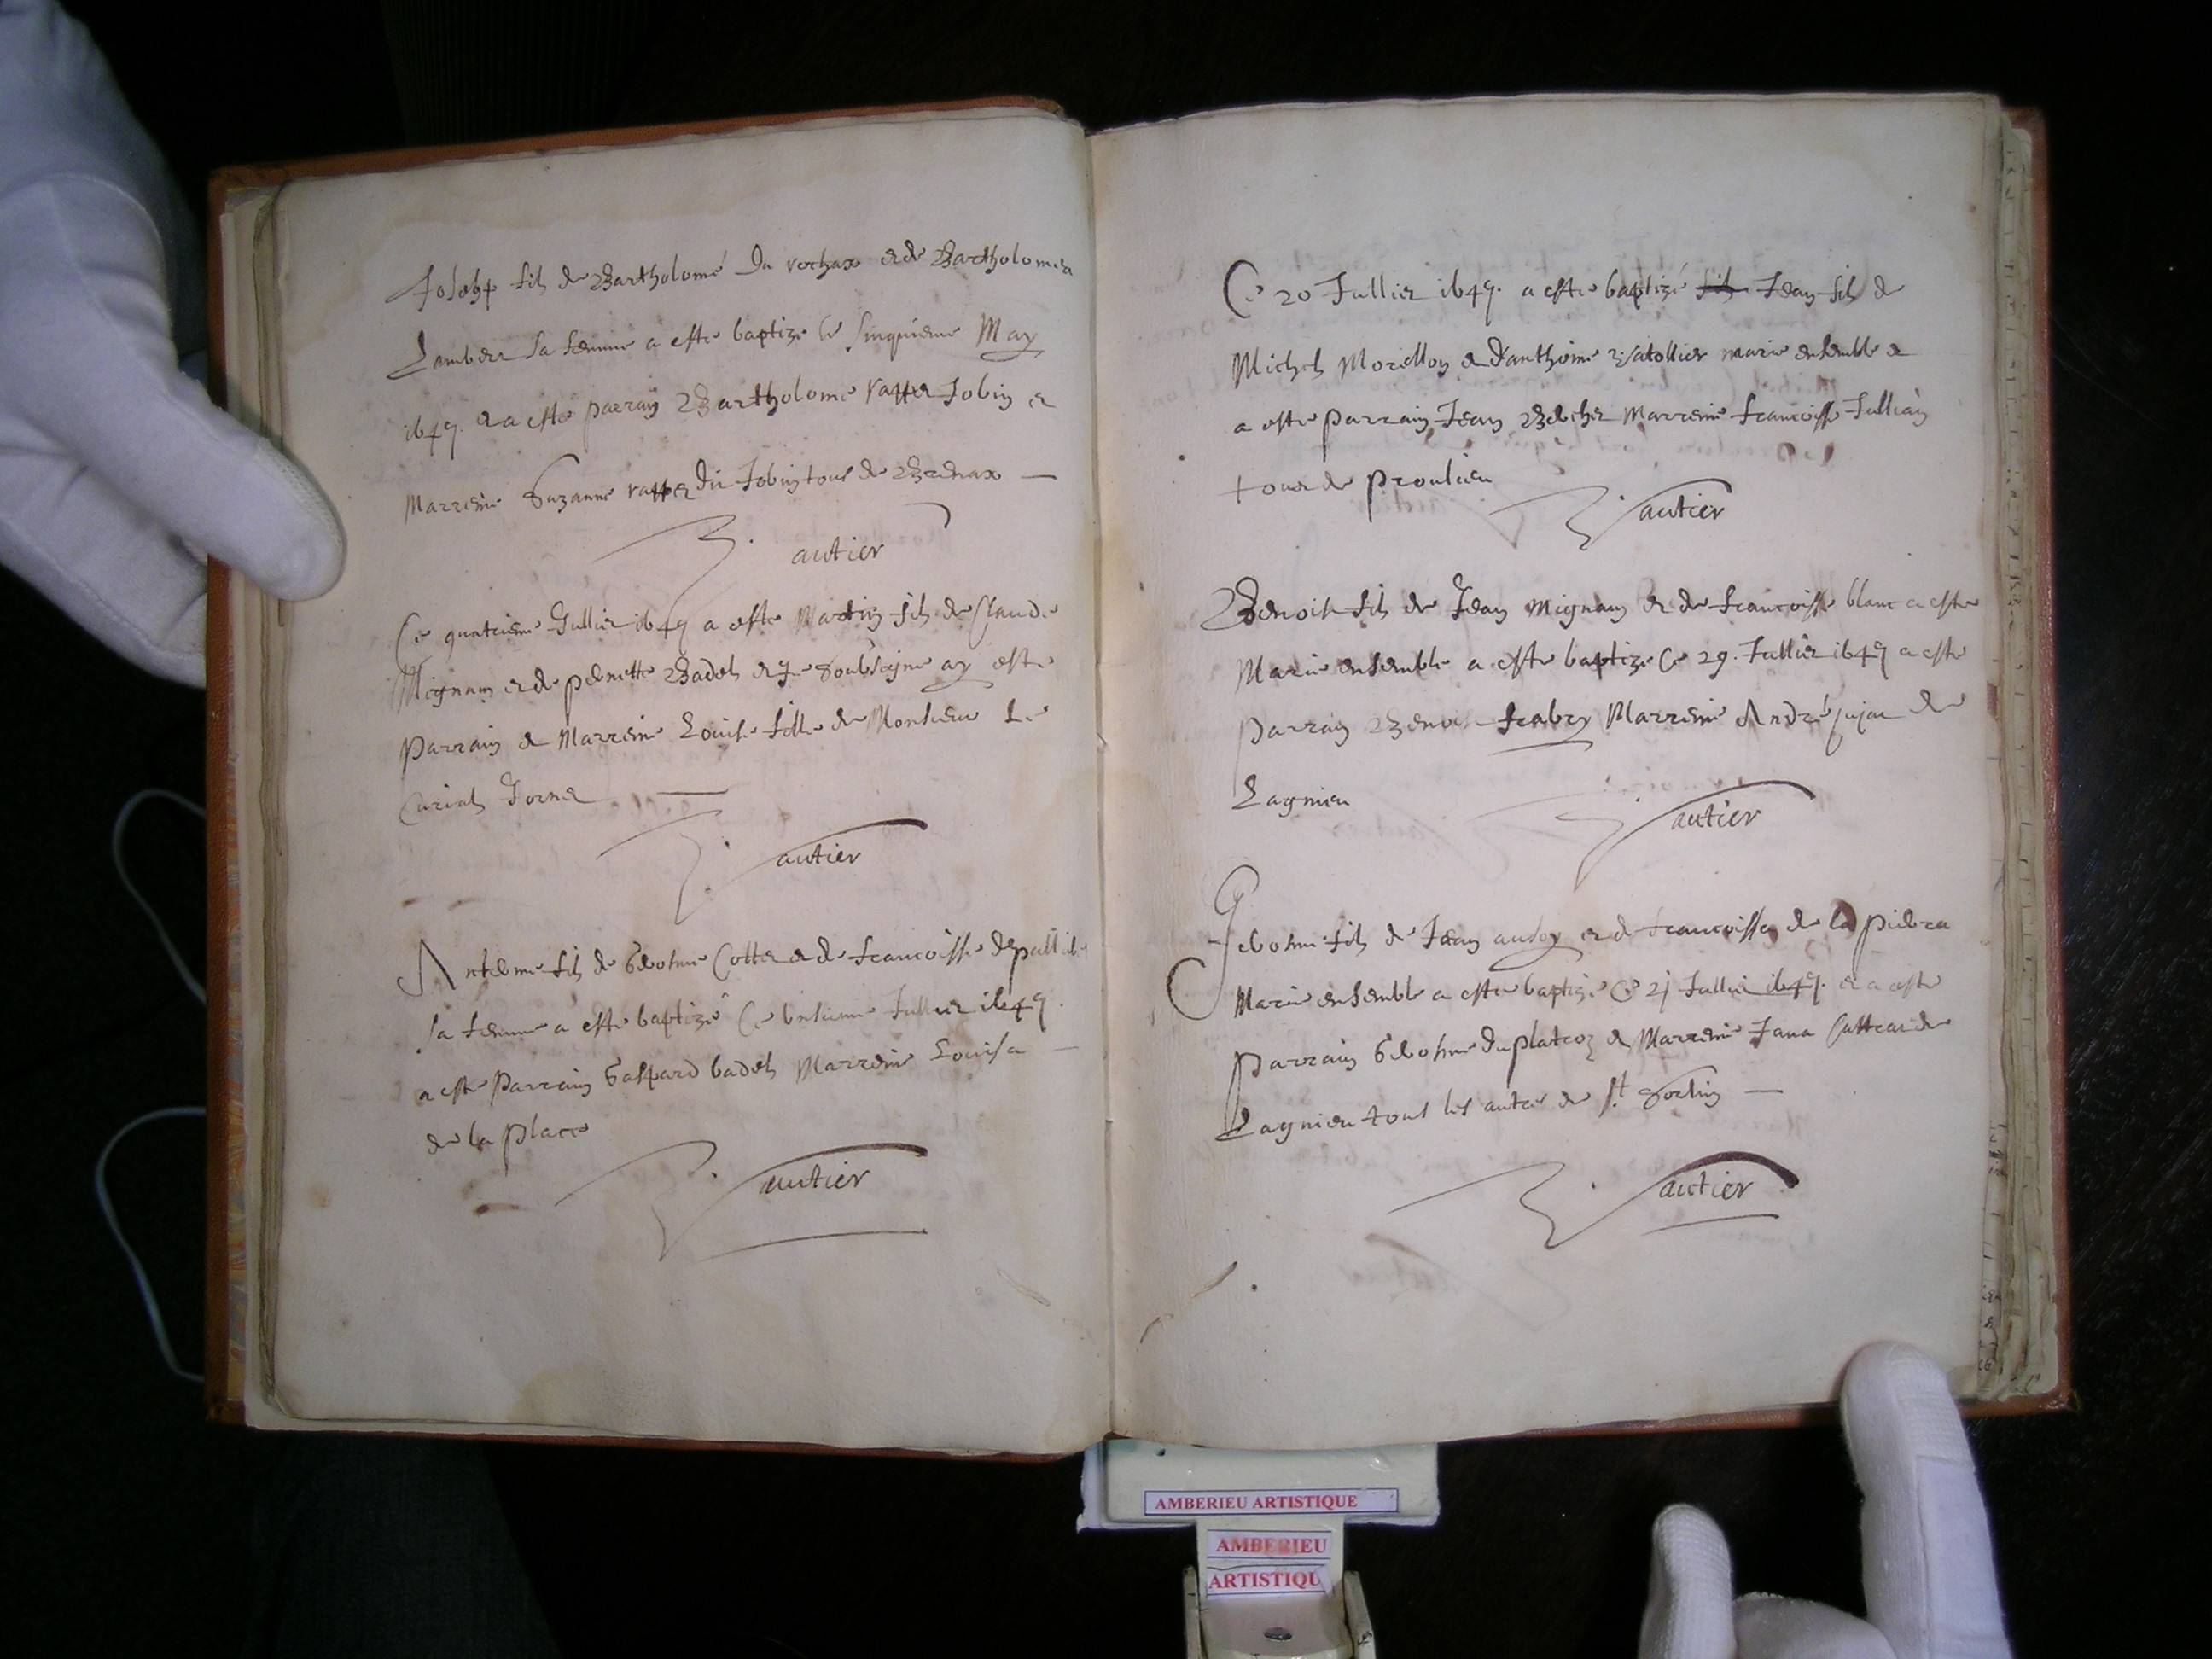 Joseph fils de Bartholomé du rochax et de Bartholomea
Lambert sa femme a esté baptizé le sinquieme May
1649. et a esté parrain Bartholomé ratter Jobin et
Marreine Suzanne ratter dit Jobin tous de Brenax
autier
Ce quatrieme Jullier 1649 a esté Martin fils de Claude
Mignam et de pernette Badel et Je soubsigne ay esté
Parrain et Marreine Louise fille de Monsieur Le
Curial
autier
Antelme fils de Geoshme Cotter et de francoisse
sa femme a esté baptizé Ce Jullier 1649.
a esté Parrain Gaspard badel Marreine Louisa
de la place
autier
Ce 20 Jullier 1649. a esté baptizé Jean fils de
Michel Morellon et d'anthoine marié ensemble et
a esté Parrain Jean Marreine francoisse Jullian
tous de Proulieu
autier
Benoist fils de Jean Mignam et de francoisse blanc a esté
Marié ensemble a esté baptizé Ce 29. Jullier 1649 a esté
Parrain Benoit Marreine André de
Lagnieu
autier
fils de Jean et de francoissa de la pierra
Marié ensemble a esté baptizé Ce Jullier 1649. et a esté
Parrain du platroz et Marreine Jana de
Lagnieu tous les autres de st Sorlin
autier
AMBERIEU ARTISTIQUE
AMBERIEU
ARTISTIQU